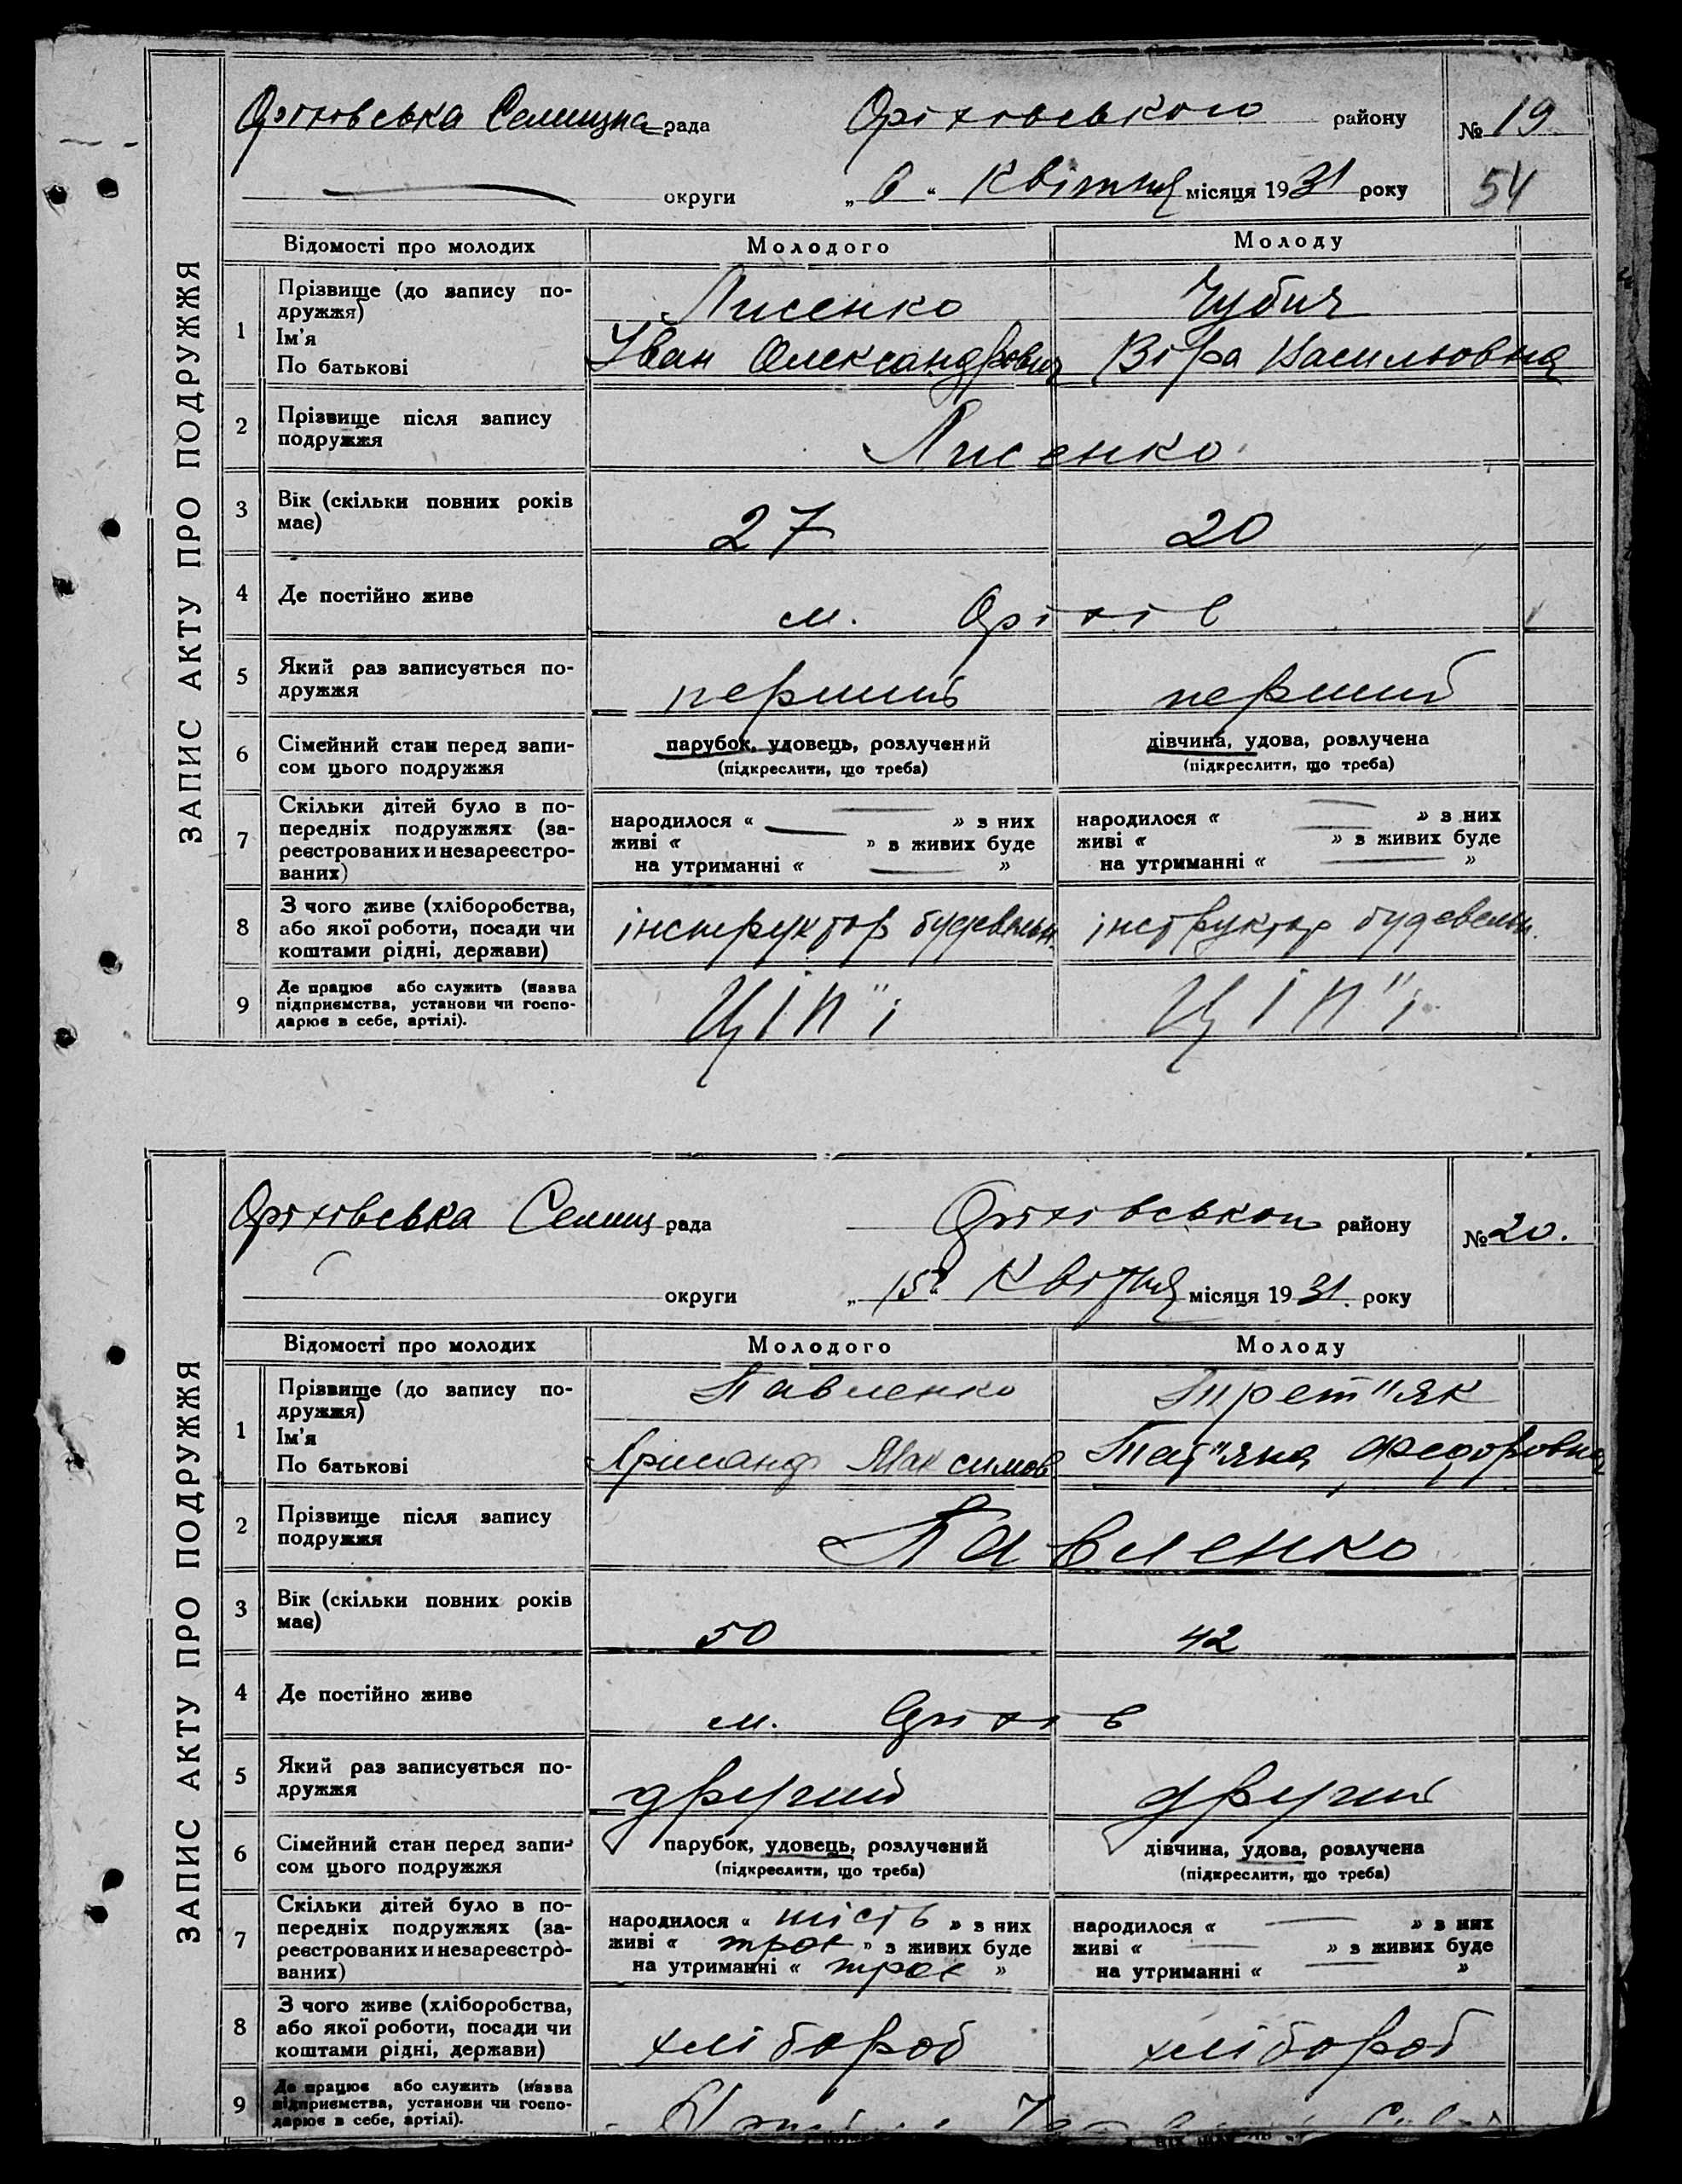 ЗАПИС АКТУ ПРО ПОДРУЖЖЯ
Оріхівська Селищна рада Оріхівського району № 19
округи „ 6 “ Квітня місяця 1931 року 54
Відомості про молодих Молодого Молоду
1 Прізвище (до запису подружжя) Лисенко Чубич
Ім'я
По батькові Іван Олександрович Віра Василювна
2 Прізвище після запису подружжя Лисенко
3 Вік (скільки повних років має) 27 20
4 Де постійно живе м. Оріхів
5 Який раз записується подружжя перший перший
6 Сімейний стан перед записом цього подружжя парубок, удовець, розлучений дівчина, удова, розлучена
(підкреслити, що треба) (підкреслити, що треба)
7 Скільки дітей було в попередніх подружжях (зареєстрованих и незареєстрованих)
народилося « — » з них народилося « — » з них
живі « — » в живих буде живі « — » в живих буде
на утриманні « — » на утриманні « — »
8 З чого живе (хліборобства, або якої роботи, посади чи коштами рідні, держави) інструктор будівельн. інструктор будевельн.
9 Де працює або служить (назва підприємства, установи чи господарює в себе, артілі). ЦІП"і ЦІП"і
ЗАПИС АКТУ ПРО ПОДРУЖЖЯ
Оріхівська Селищ рада Оріхівського району № 20.
округи „ 15 “ Квітня місяця 1931. року
Відомості про молодих Молодого Молоду
1 Прізвище (до запису подружжя) Павленко Трет"як
Ім'я
По батькові Максимов Тат"яна Федоровна
2 Прізвище після запису подружжя Павленко
3 Вік (скільки повних років має) 50 42
4 Де постійно живе м. Оріхів
5 Який раз записується подружжя другий другий
6 Сімейний стан перед записом цього подружжя парубок, удовець, розлучений дівчина, удова, розлучена
(підкреслити, що треба) (підкреслити, що треба)
7 Скільки дітей було в попередніх подружжях (зареєстрованих и незареєстрованих)
народилося « шість » з них народилося « — » з них
живі « трое » в живих буде живі « — » в живих буде
на утриманні « трое » на утриманні « — »
8 З чого живе (хліборобства, або якої роботи, посади чи коштами рідні, держави) хлібороб хлібороб
9 Де працює або служить (назва підприємства, установи чи господарює в себе, артілі).